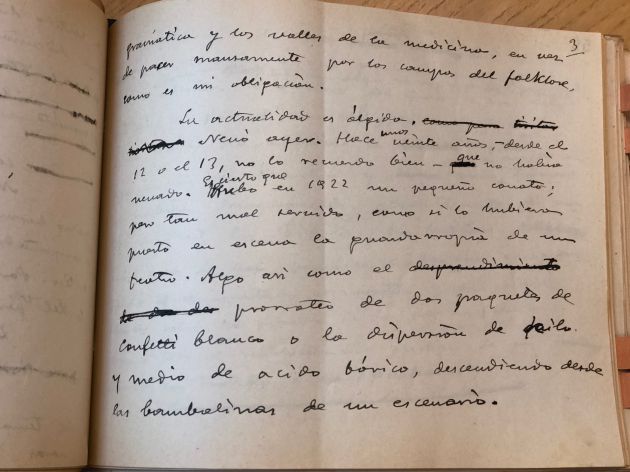 3
gramática y los valles de la medicina, en vez
de pacer mansamente por los campos del folklore,
como es mi obligación.
La actualidad es álgida. como para
Nevó ayer. Hace unos veinte años, -desde el
12 o el 13, no lo recuerdo bien - que no había
nevado. Es cierto que hubo en 1922 un pequeño conato;
pero tan mal servido, como si lo hubiera
puesto en escena la guardarropía de un
teatro. Algo así como el desprendimiento
prorrateo de dos paquetes de
confetti blanco o la dispersión de kilo
y medio de acido bórico, descendiendo desde
las bambalinas de un escenario.